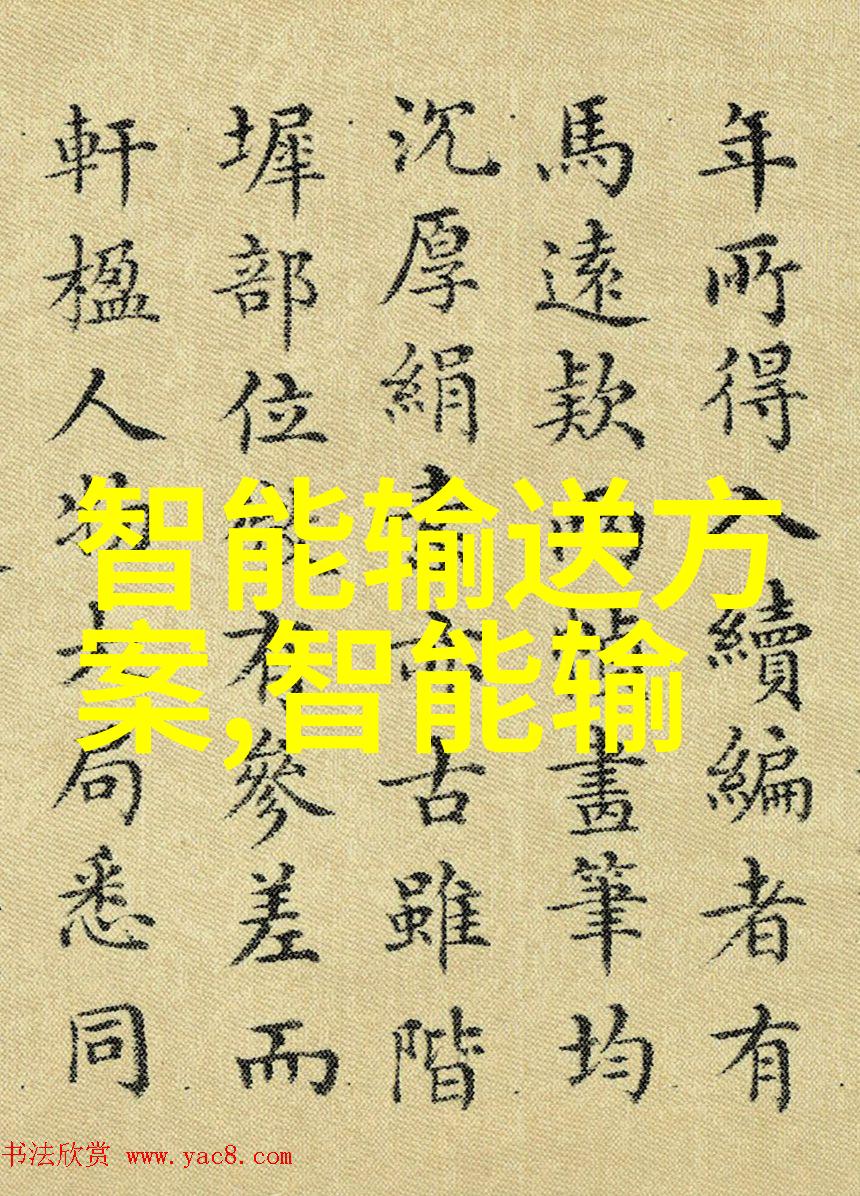 年所得入續編者有
馬遠欵兩畫筆均
沉厚絹素亦古雖階
墀部位有參差而
軒楹人物大局悉同
智能输送方
案,智能输
书法欣赏 www.yac8.com